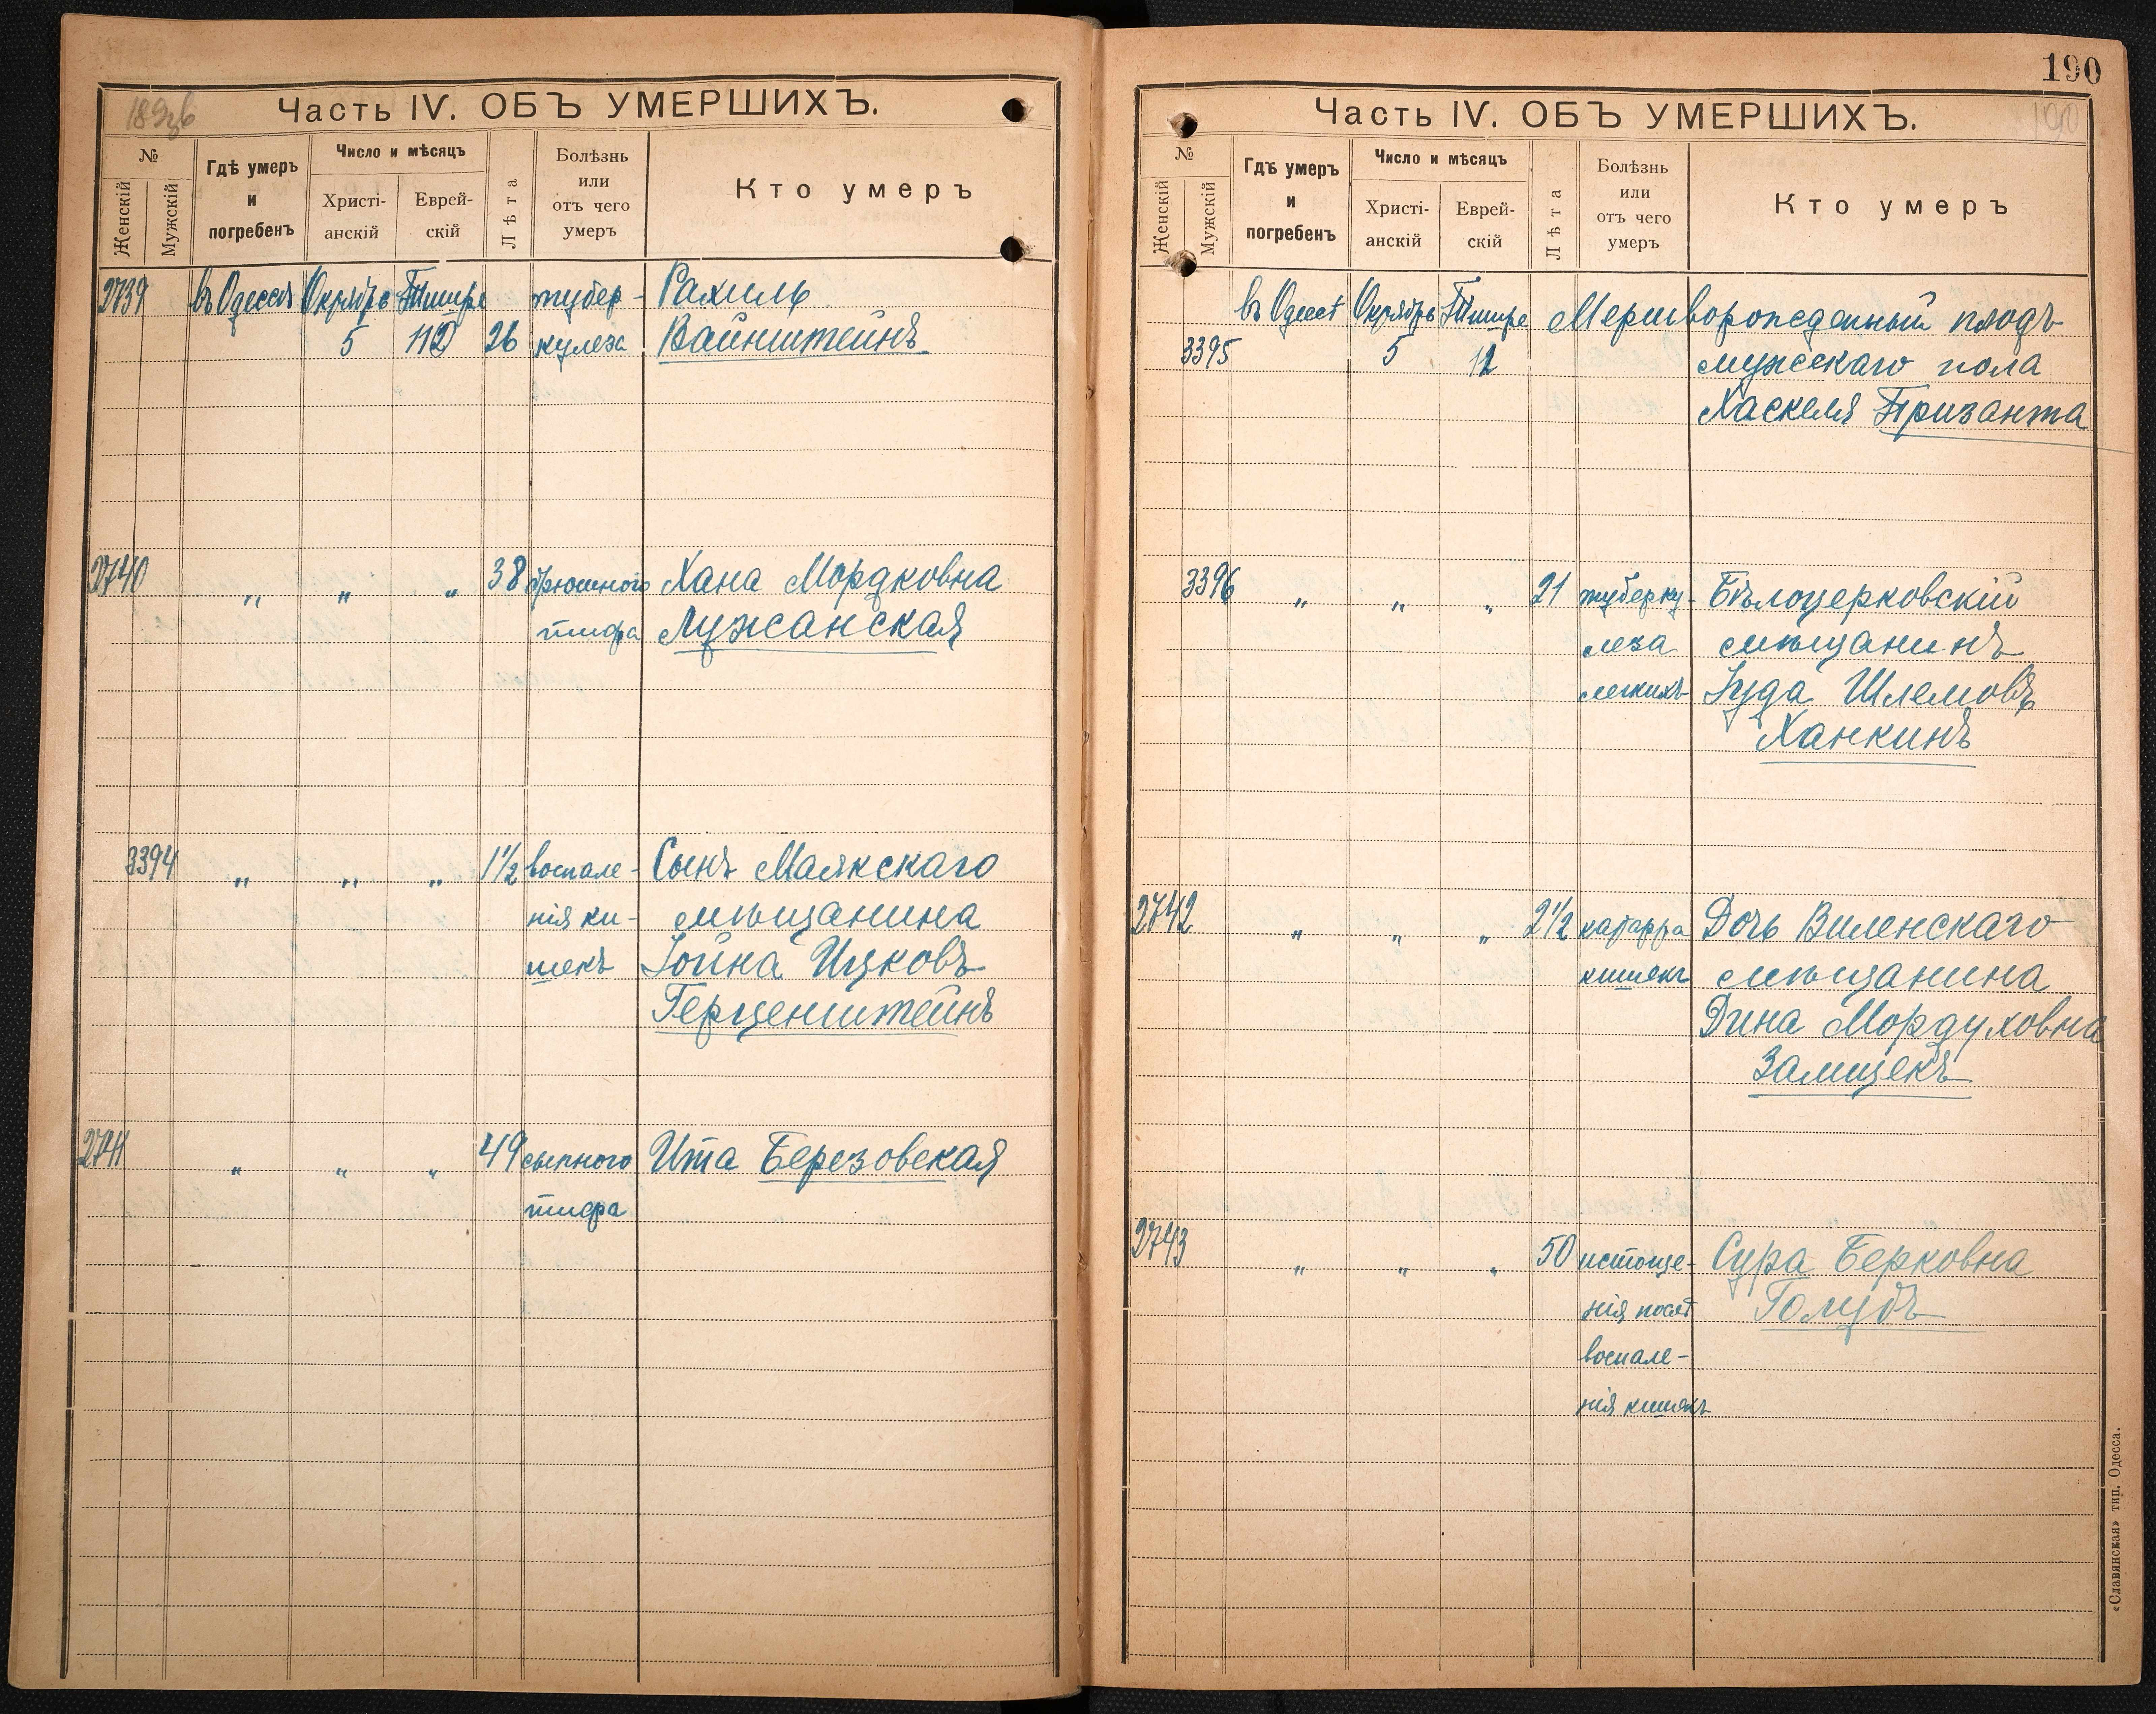 189об
Часть IV. ОБЪ УМЕРШИХЪ.
№
Женскій
Мужскій
Гдѣ умеръ
и
погребенъ
Число и мѣсяцъ
Христі-
анскій
Еврей-
скій
Лѣта
Болѣзнь
или
отъ чего
умеръ
Кто умеръ
2739 въ Одессѣ Октябрь Тишре тубер- Рахиль
5 12 26 кулеза Вайнштейнъ
2740 „ „ „ 38 брюшного Хана Мордковна
тифа Лужанская
3394 „ „ „ 1½ воспале- Сынъ Маякскаго
нія ки- мѣщанина
шекъ Іойна Ицковъ
Герценштейнъ
2741 „ „ „ 49 сыпного Ита Березовская
тифа
190
Часть IV. ОБЪ УМЕРШИХЪ.
190
№
Женскій
Мужскій
Гдѣ умеръ
и
погребенъ
Число и мѣсяцъ
Христі-
анскій
Еврей-
скій
Лѣта
Болѣзнь
или
отъ чего
умеръ
Кто умеръ
въ Одессѣ Октябрь Тишре Мертворожденный плодъ
3395 5 12 мужскаго пола
Хаскеля Призанта
3396 „ „ „ 21 туберку- Бѣлоцерковскій
леза мѣщанинъ
легкихъ Іуда Шлемовъ
Ханкинъ
2742 „ „ „ 2½ катарра Дочь Виленскаго
кишекъ мѣщанина
Дина Мордуховна
Замщекъ
2743 „ „ „ 50 истоще- Сура Берковна
нія послѣ Голубъ
воспале-
нія кишекъ
«Славянская» тип. Одесса.